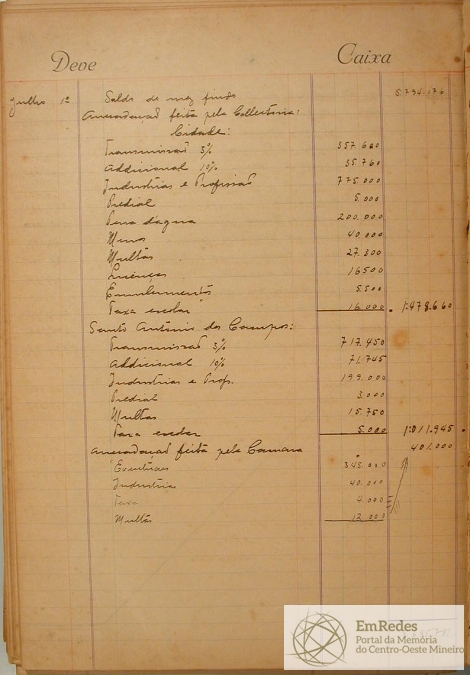 Deve Caixa
Julho 1º Saldo do mez findo 5.734.176
Arrecadação feita pela Collectoria:
Cidade:
Transmissão 5% 357.600
Addicional 10% 35.760
Industrias e Profissão 775.000
Predial 5.000
Penna dagua 200.000
Muros 40.000
Multas 27.300
Licenças 16500
Emolumentos 5.500
Taxa escolar 16.000 1:478.660
Santo Antonio dos Campos:
Transmissão 5% 717.450
Addicional 10% 71.745
Industrias e Prof. 199.000
Predial 3.000
Multas 15.750
Taxa escolar 5.000 1:011.945
Arrecadação feita pela Camara 401.000
345.000
Industria 40.000
Taxa 4.000
Multas 12.000
EmRedes
Portal da Memória
do Centro-Oeste Mineiro